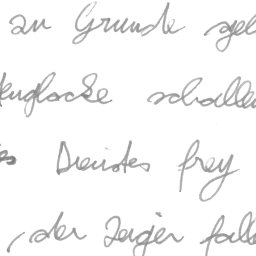 zu Grunde gel
tenglocke schallen
es Dienstes frey
, der Zeiger falle